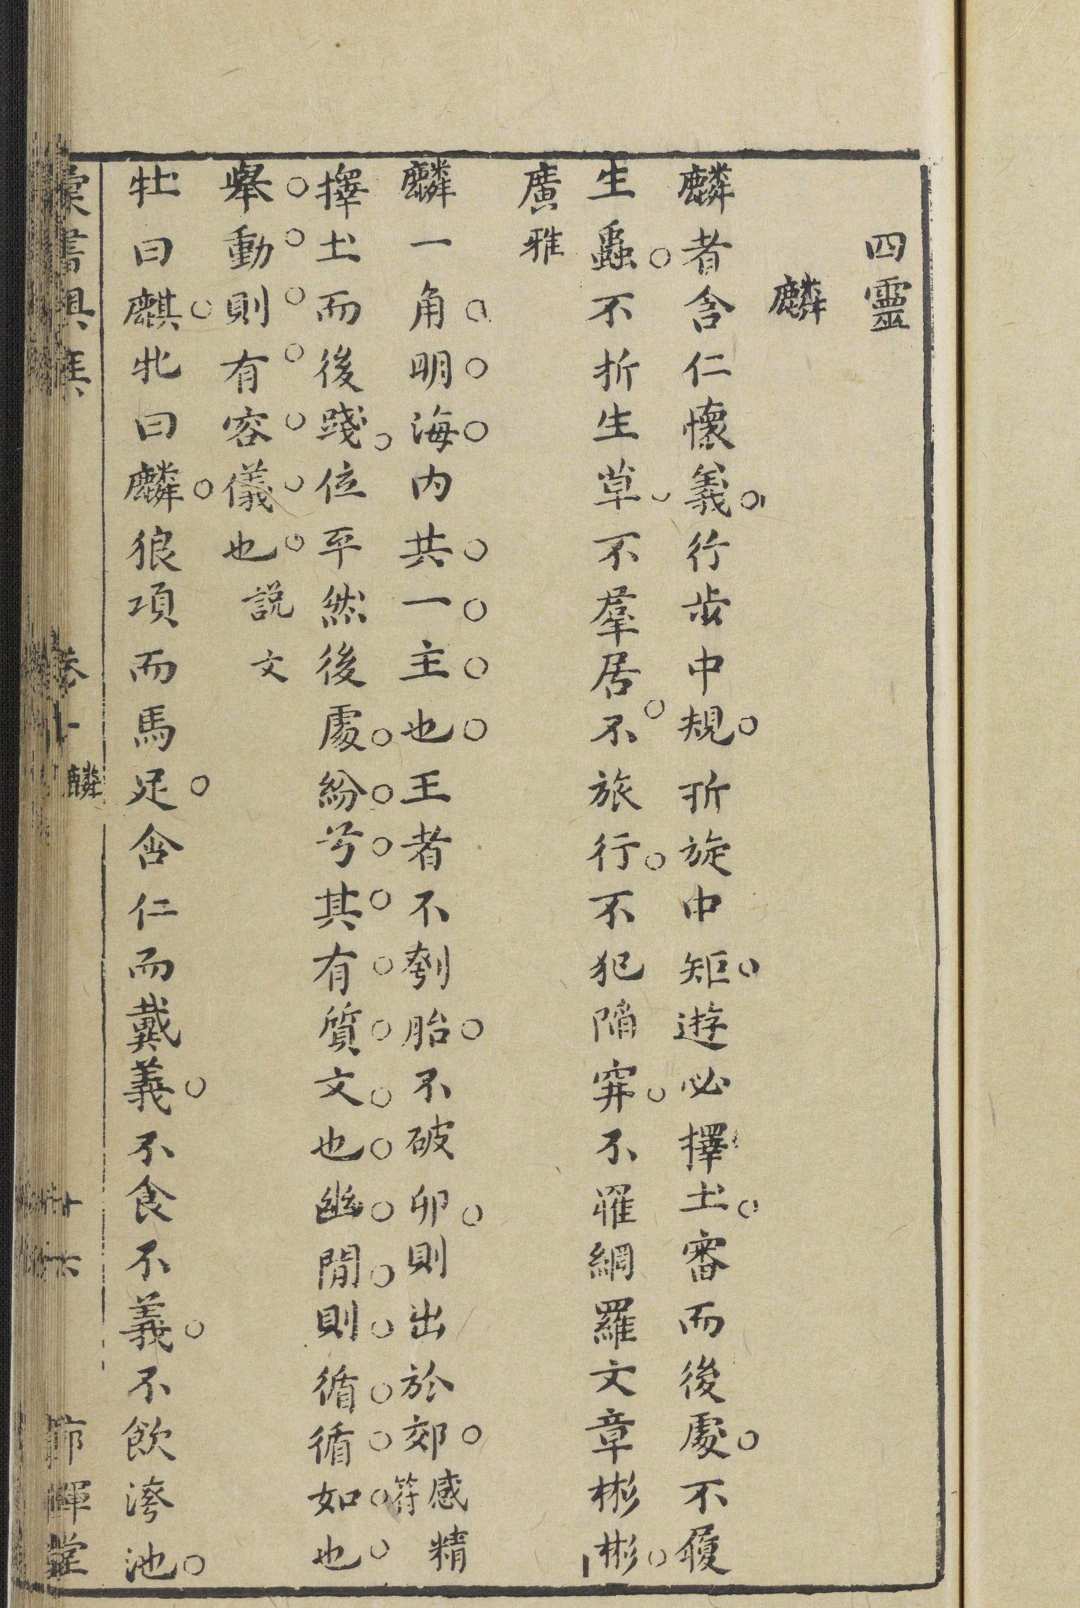 四靈
麟
麟者含仁懷義行步中規折旋中矩遊必擇土審而後處不履
生蟲不折生草不羣居不旅行不犯陷穽不罹綱羅文章彬彬
廣雅
麟一角明海内共一主也王者不刳胎不破卵則出於郊感精符
擇土而後踐位平然後處紛兮其有質文也幽閒則循循如也
舉動則有容儀也說文
牡曰麒牝曰麟狼項而馬足含仁而戴義不食不義不飲洿池
彙書
卷十 麟 十六
暉堂